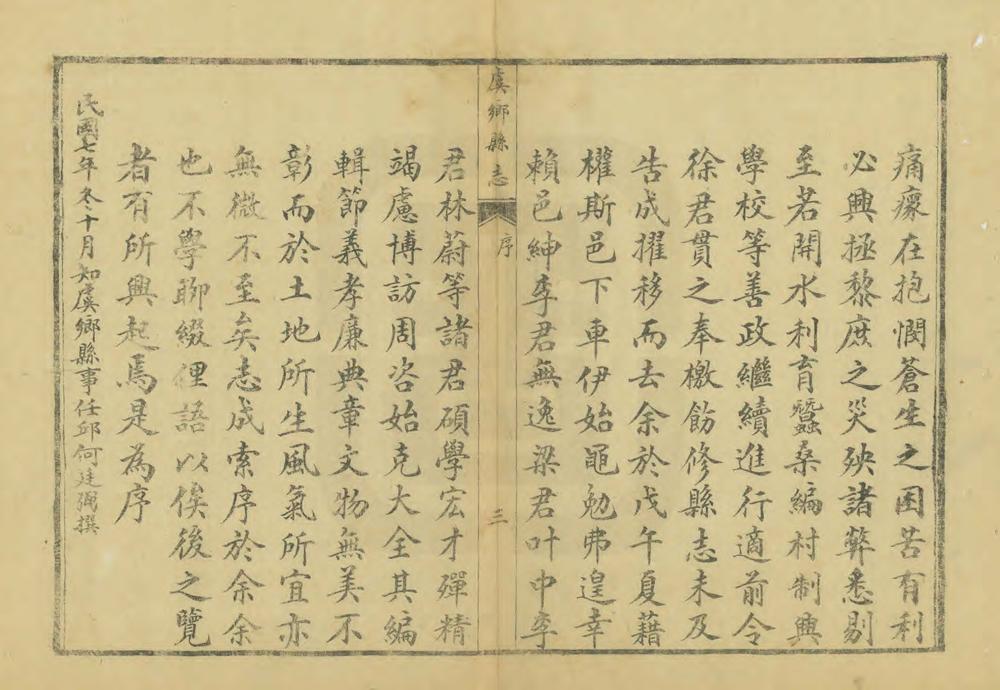 痛瘝在抱憫蒼生之困苦有利
必興拯黎庶之災殃諸弊悉剔
至若開水利育蠶桑編村制興
學校等善政繼續進行適前令
徐君貫之奉檄飭修縣志未及
告成擢移而去余於戊午夏藉
權斯邑下車伊始黽勉弗遑幸
賴邑紳李君無逸梁君叶中李
虞鄉縣志
序
三
君林蔚等諸君碩學宏才殫精
竭慮博訪周咨始克大全其編
輯節義孝廉典章文物無美不
彰而於土地所生風氣所宜亦
無微不至矣志成索序於余余
也不學聊綴俚語以俟後之覽
者有所興起焉是為序
民國七年冬十月知虞鄉縣事任邱何廷弼撰